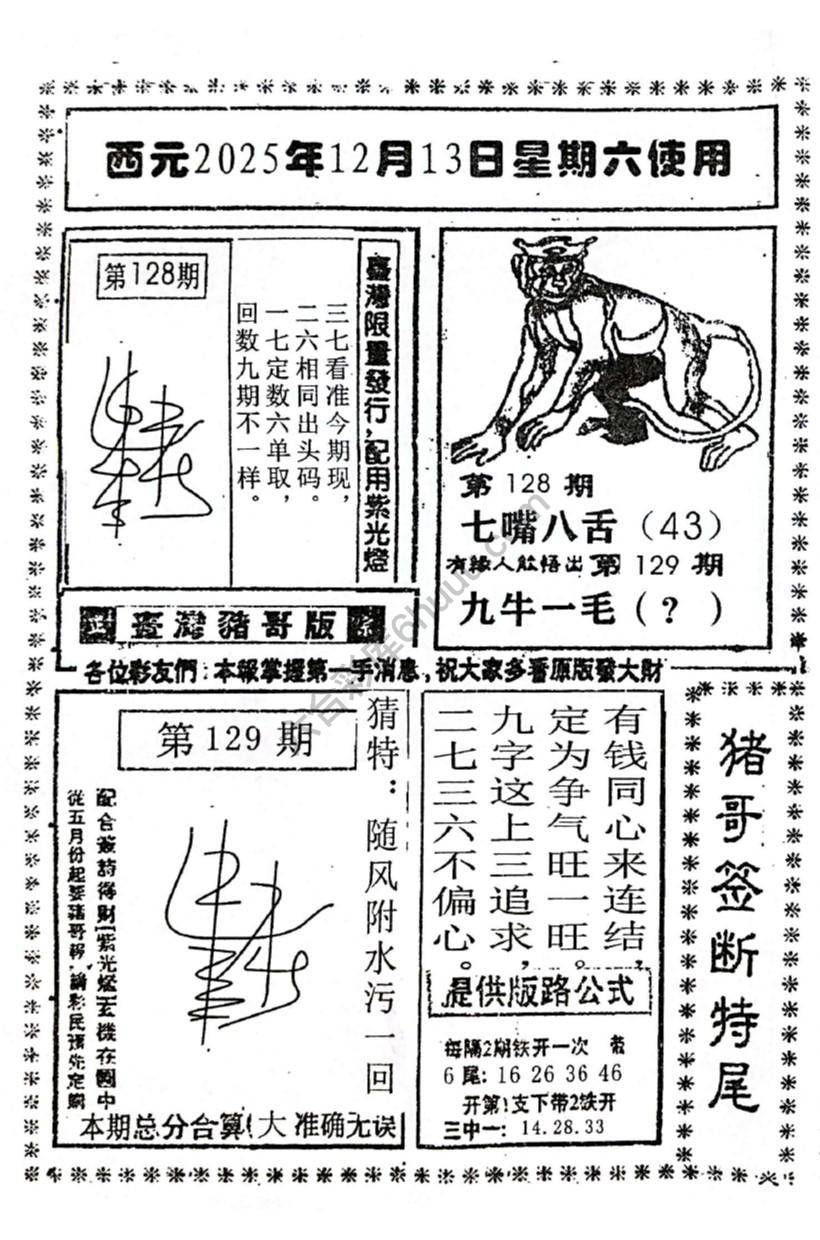 西元2025年12月13日星期六使用
第128期
三七看准今期现，
二六相同出头码。
一七定数六单取，
回数九期不一样。
臺灣限量發行，配用紫光燈
第 128 期
七嘴八舌（43）
有緣人能悟出 第 129 期
九牛一毛（?）
臺灣豬哥版
各位彩友們：本報掌握第一手消息，祝大家多看原版發大財
第 129 期
猜特：随风附水污一回
配合签詩得財【紫光燈】玄機在圖中
從五月份起要豬哥報，請彩民預先定購
本期总分合算(大 准确无误
有钱同心来连结，
定为争气旺一旺。
九字这上三追求，
二七三六不偏心。
提供版路公式
每隔2期铁开一次
6尾: 16 26 36 46
开第1支下带2铁开
三中一: 14.28.33
猪哥签断特尾
六合彩库6huuu.com